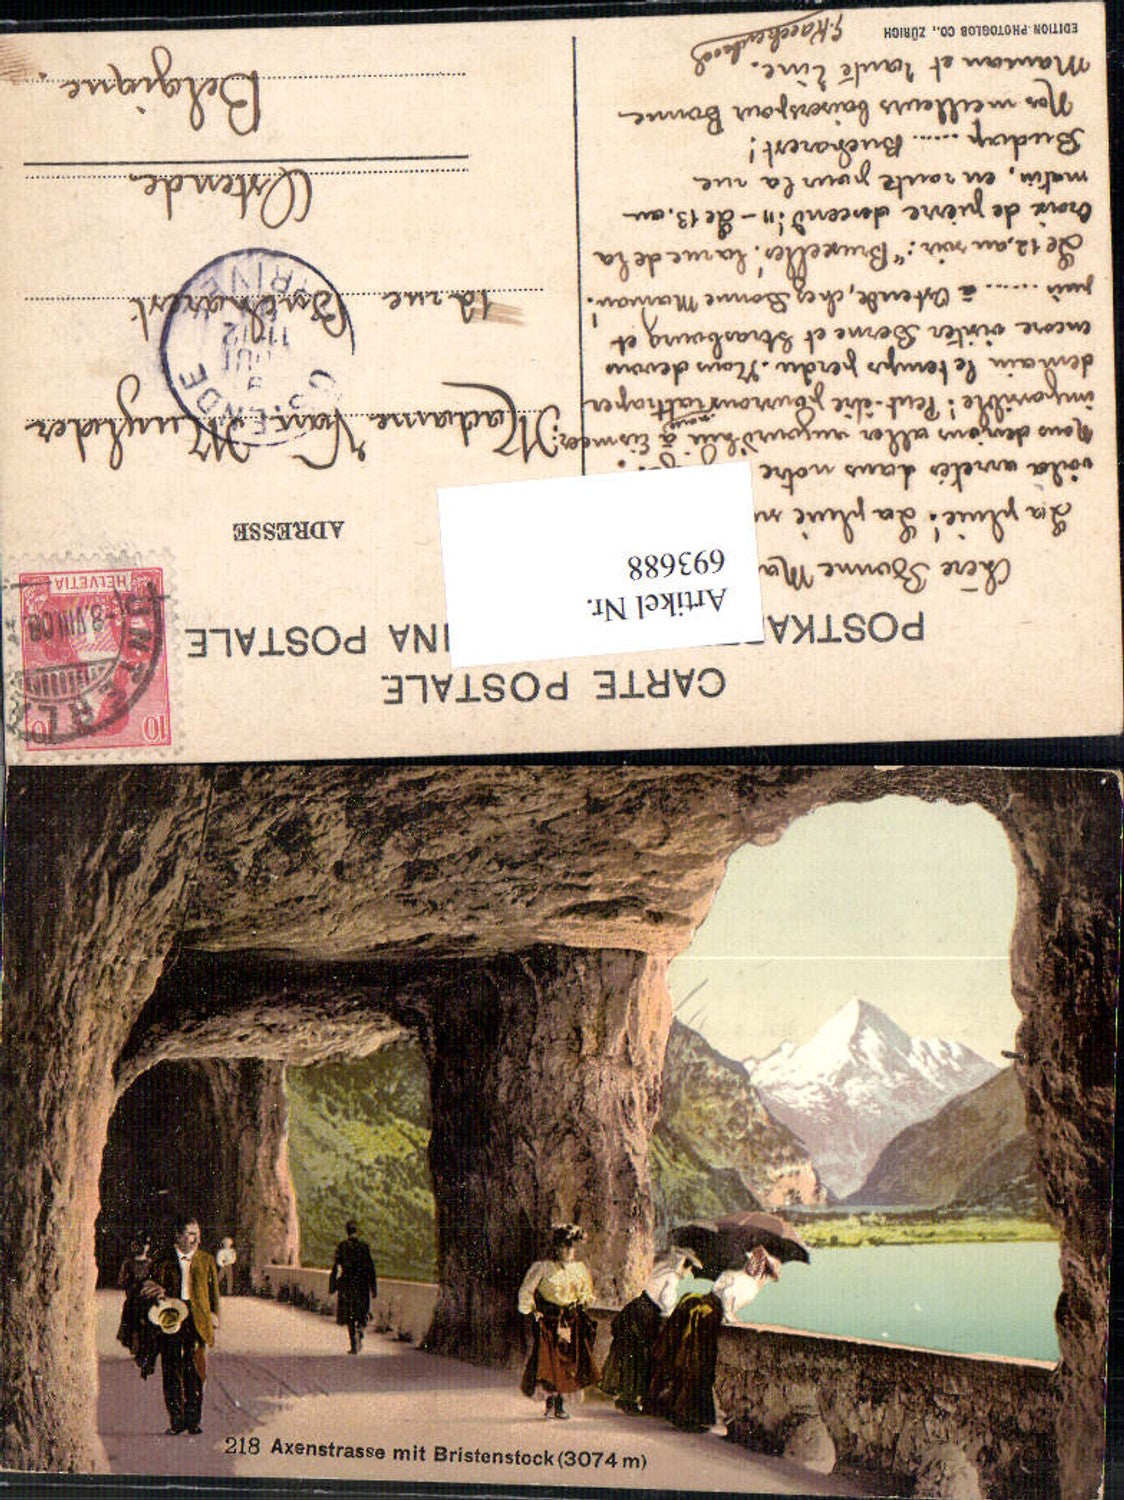 CARTE POSTALE
POSTKA NA POSTALE
Artikel Nr.
693688
ADRESSE
HELVETIA
10
-8.VIII.08
Chère Bonne Ma
La pluie! La pluie
voilà arrêtés dans notre
Nous devions aller aujourd'hui à Eismeer:
impossible! Peut-être pourrons nous rattraper
demain le temps perdu. Nous devons
encore visiter Berne et Strasbourg et
puis ...... à Ostende, chez Bonne Maman!
Le 12, au soir: "Bruxelles! la rue de la
croix de pierre descend!!! - Le 13, au
matin, en route pour la rue
Budap ...... Bucharest!
Nos meilleurs baisers pour Bonne
Maman et tante Line.
Madame Van Muylder
12 rue Bucharest
Ostende
Belgique
OSTENDE
EDITION PHOTOGLOB CO., ZÜRICH
218 Axenstrasse mit Bristenstock (3074 m)